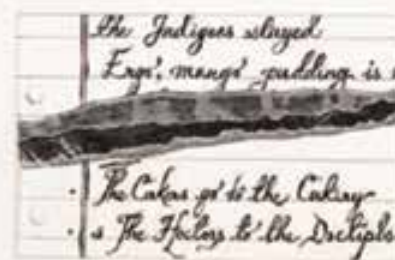 the Indigoes stayed
Ergo, mango pudding is
The Cakes go to the Cakery
The to the